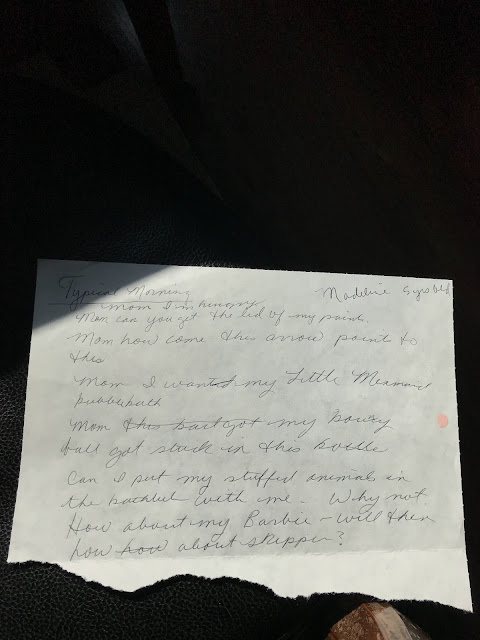 Typical Morning Madeline 5 yrs old
Mom I'm hungry
Mom can you get the lid of my paint.
Mom how come this arrow point to
this
Mom I want my Little Mermaid
bubblebath
Mom this got my bouncy
ball got stuck in this bottle
Can I put my stuffed animals in
the bathtub with me. Why not
How about my Barbie - will then
how how about skipper?